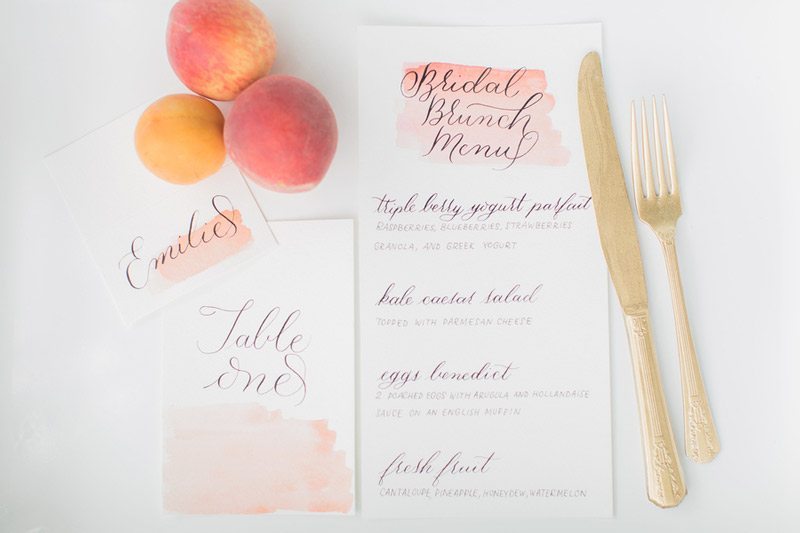 Bridal
Brunch
Menu
triple berry yogurt parfait
RASPBERRIES, BLUEBERRIES, STRAWBERRIES
GRANOLA, AND GREEK YOGURT
kale caesar salad
TOPPED WITH PARMESAN CHEESE
eggs benedict
2 POACHED EGGS WITH ARUGOLA AND HOLLANDAISE
SAUCE ON AN ENGLISH MUFFIN
fresh fruit
CANTALOUPE, PINEAPPLE, HONEYDEW, WATERMELON
Emilie
Table
one